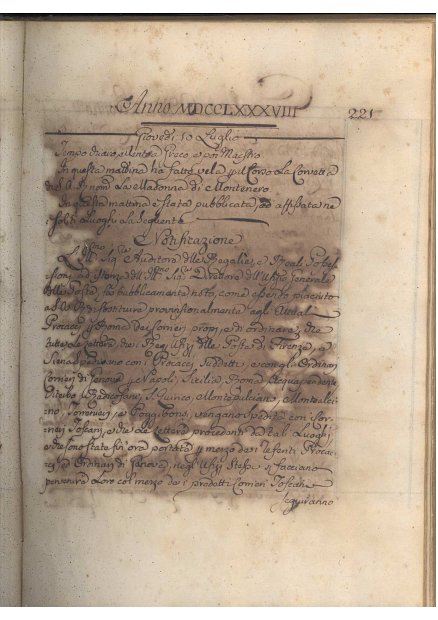 Anno MDCCLXXXVIII
221
Giovedì 10 Luglio
Tempo chiaro, e Vento a Greco e poi Maestro
In questa mattina ha fatto vela p il Corso la Corvetta
di S. A. R. nom. La Madonna di Montenero
In questa mattina è stata pubblicata, ed affissata ne
soliti Luoghi la seguente
Notificazione
L'Ill.mo Sig.re Auditore delle Regalie, e Reali Posses-
sioni, ad Istanza dell' Ill.mo Sig.re Direttore dell' Ufizio Generale
delle Poste, fa pubblicamente noto, come essendo piaciuto
a S. A. R. di sostituire provvisionalmente agli Attuali
Procacci, e Pedoni dei Corrieri propri, ed ordinare, che
tutte le Lettere, che i Regj Ufizj delle Poste di Firenze, e
Siena spedivano con i Procacci suddetti, e con gli Ordinari
Corrieri di Genova p Napoli, Sicilia, Roma, Acquapendente
Viterbo, Radicofani, S. Quirico, Montepulciano, Montalci-
no, Torrenieri, e Poggibonsi, vengano spedite con Cor-
rieri Toscani, e che le Lettere procedenti da tali Luoghi
che sono state fin' ora portate p mezzo dei Procac-
ci, ed Ordinari di Genova, negli Ufizj Stessi si facciano
pervenire a loro col mezzo dei predetti Corrieri Toscani
Seguiranno